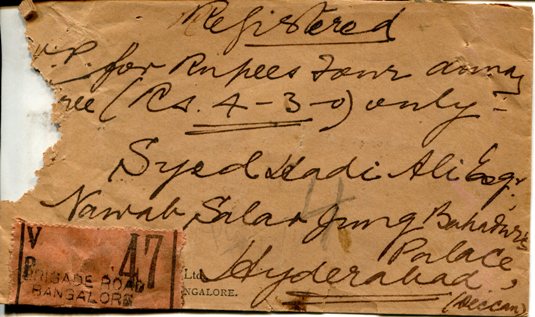 Registered
V.P. for Rupees Four annas
ree (Rs. 4-3-0) only-
Syed Hadi Ali Esqr.
Nawab Salar Jung Bahadur's
Palace,
Hyderabad,
(Deccan)
V
P
47
BRIGADE ROAD
BANGALORE
Ltd.
NGALORE.
4